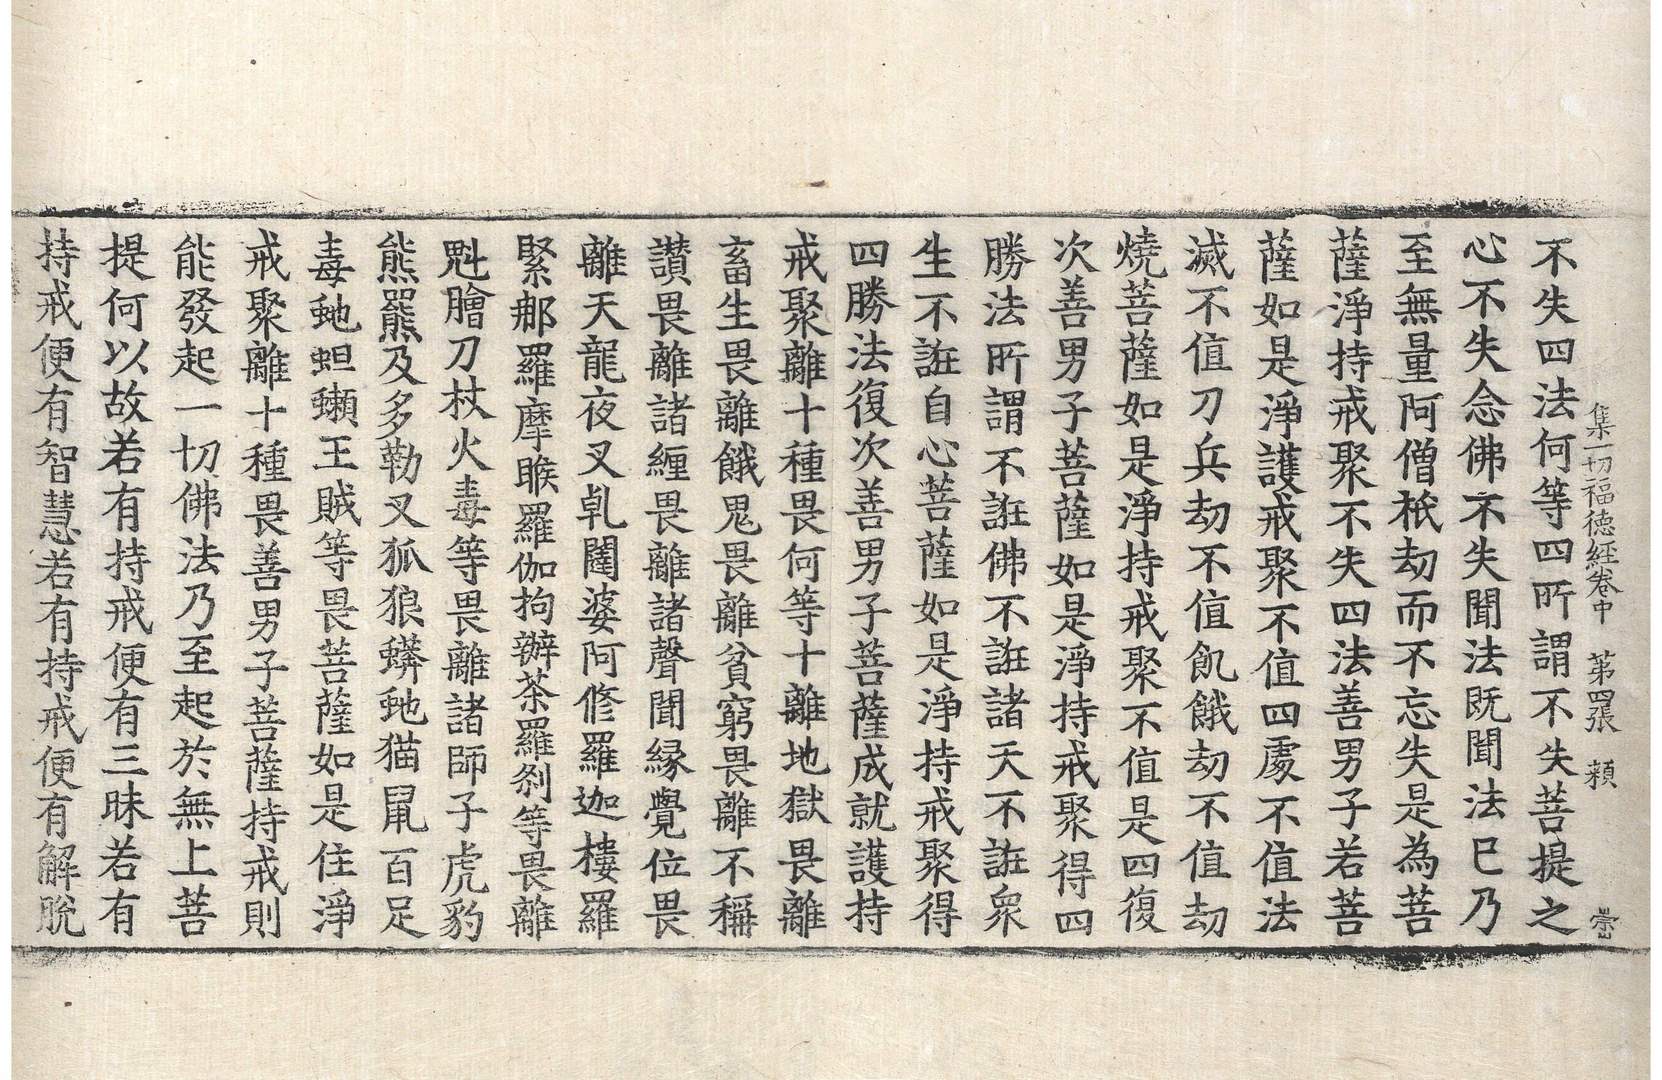 集一切福德經卷中　第四張　頼
不失四法何等四所謂不失菩提之
心不失念佛不失聞法既聞法已乃
至無量阿僧祇劫而不忘失是為菩
薩淨持戒聚不失四法善男子若菩
薩如是淨護戒聚不值四處不值法
滅不值刀兵劫不值飢餓劫不值劫
燒菩薩如是淨持戒聚不值是四復
次善男子菩薩如是淨持戒聚得四
勝法所謂不誑佛不誑諸天不誑衆
生不誑自心菩薩如是淨持戒聚得
四勝法復次善男子菩薩成就護持
戒聚離十種畏何等十離地獄畏離
畜生畏離餓鬼畏離貧窮畏離不稱
讃畏離諸纒畏離諸聲聞縁覺位畏
離天龍夜叉乹闥婆阿修羅迦樓羅
緊那羅摩睺羅伽拘辦茶羅刹等畏離
魁膾刀杖火毒等畏離諸師子虎豹
熊羆及多勒叉狐狼蠎虵猫鼠百足
毒虵蛆蠍王賊等畏菩薩如是住淨
戒聚離十種畏善男子菩薩持戒則
能發起一切佛法乃至起於無上菩
提何以故若有持戒便有三昧若有
持戒便有智慧若有持戒便有解脫